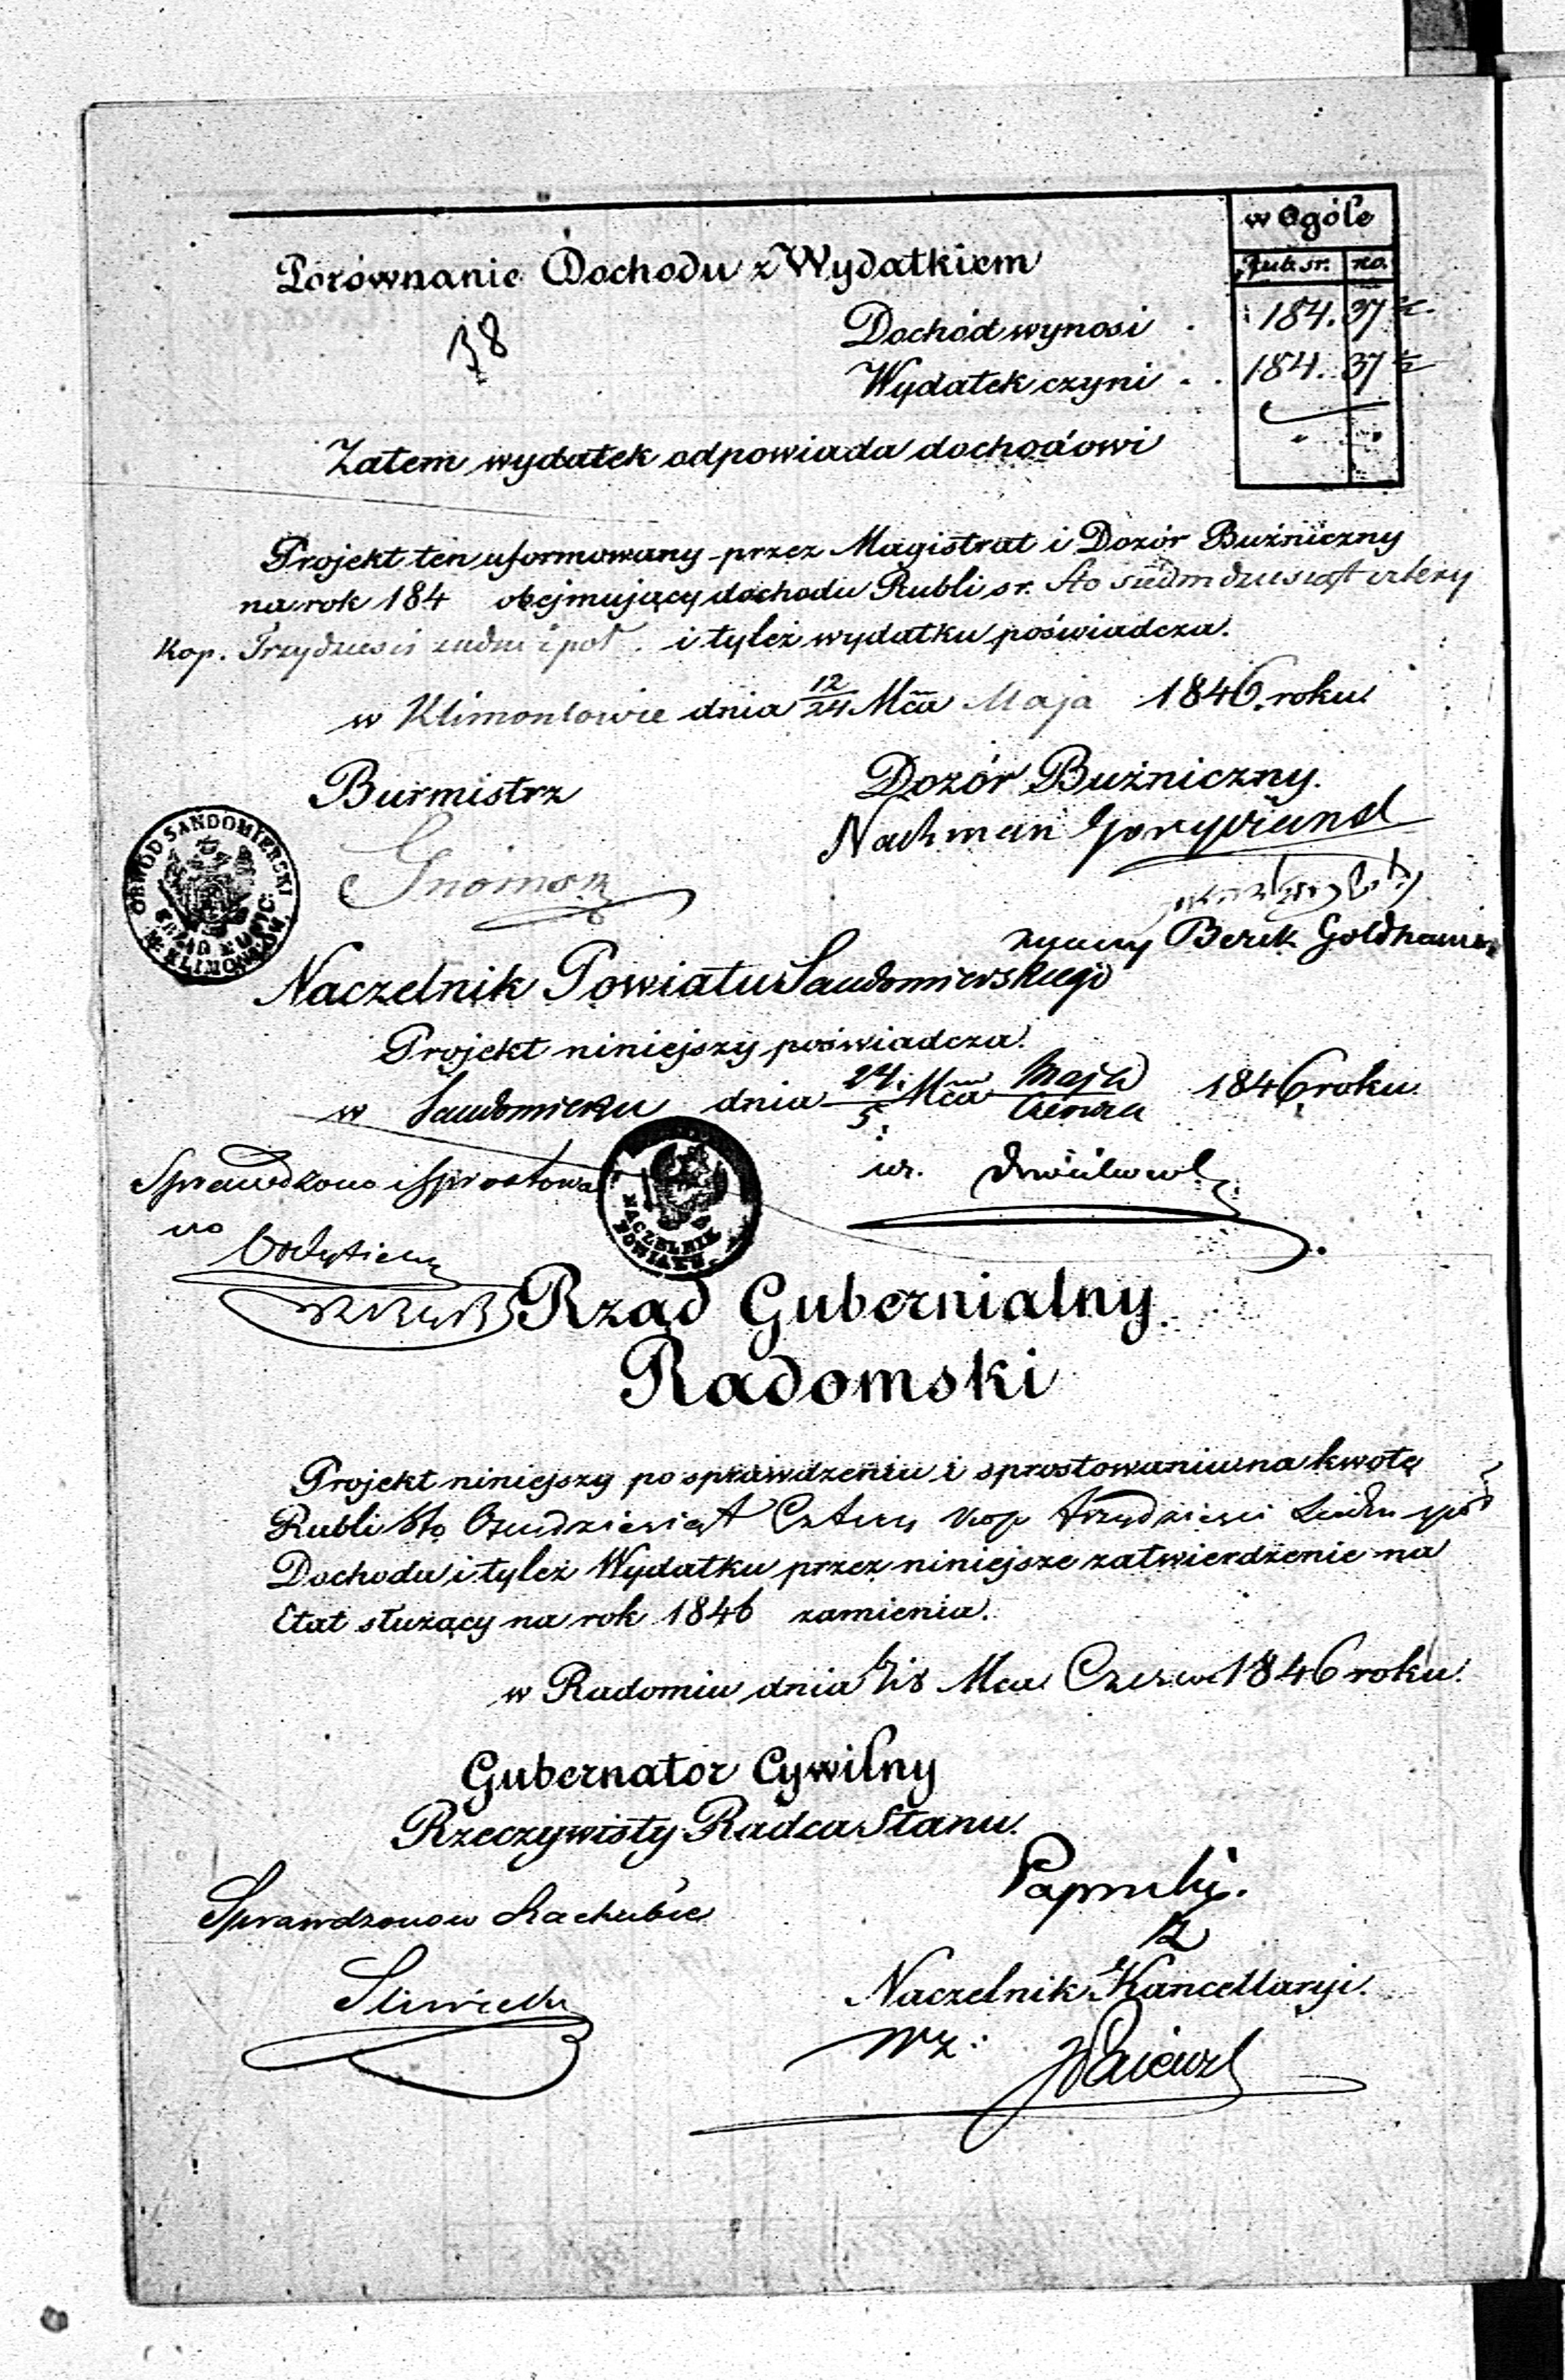 w Ogóle
Rub. sr. ko.
Porównanie Dochodu z Wydatkiem
38
Dochód wynosi . 184. 37 ½
Wydatek czyni . . 184. 37 ½
Zatem wydatek odpowiada dochodowi " "
Projekt ten uformowany przez Magistrat i Dozór Buźniczny
na rok 184 obejmujący dochodu Rubli sr. Sto siedmdziesiąt cztery
Kop. Trzydzieści siedm i poł . i tyleż wydatku poświadcza.
w Klimontowie dnia 12/24 Mca Maja 1846. roku.
Burmistrz
Dozór Buźniczny.
Nachman
Berek Goldhamer
OBWÓD SANDOMIERSKI
URZĄD MUNIC. M. KLIMONTOW.
Naczelnik Powiatu Sandomierskiego
Projekt niniejszy poświadcza.
w Sandomierzu dnia 24./5 Mca Maja/Czerwca 1846 roku.
Sprawdzono i sprostowa
no
NACZELNIK POWIATU
Rząd Gubernialny
Radomski
Projekt niniejszy po sprawdzeniu i sprostowaniu na kwotę
Rubli Sto Ośmdziesiąt Cztery Kop. trzydzieści siedm i pół
Dochodu i tyleż Wydatku przez niniejsze zatwierdzenie na
Etat służący na rok 1846 zamienia.
w Radomiu dnia 6/18 Mca Czerwc 1846 roku.
Gubernator Cywilny
Rzeczywisty Radca Stanu.
Sprawdzono w Rachubie
Naczelnik Kancellaryi.
wz: